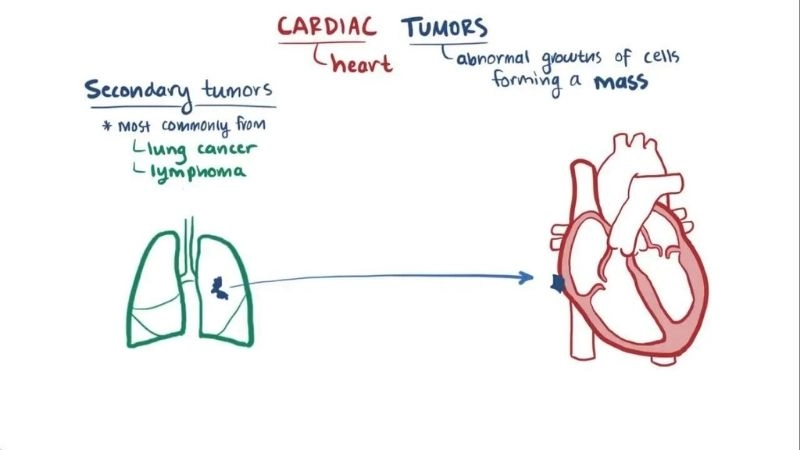 CARDIAC TUMORS
heart
abnormal growths of cells
forming a mass
Secondary tumors
* most commonly from
lung cancer
lymphoma